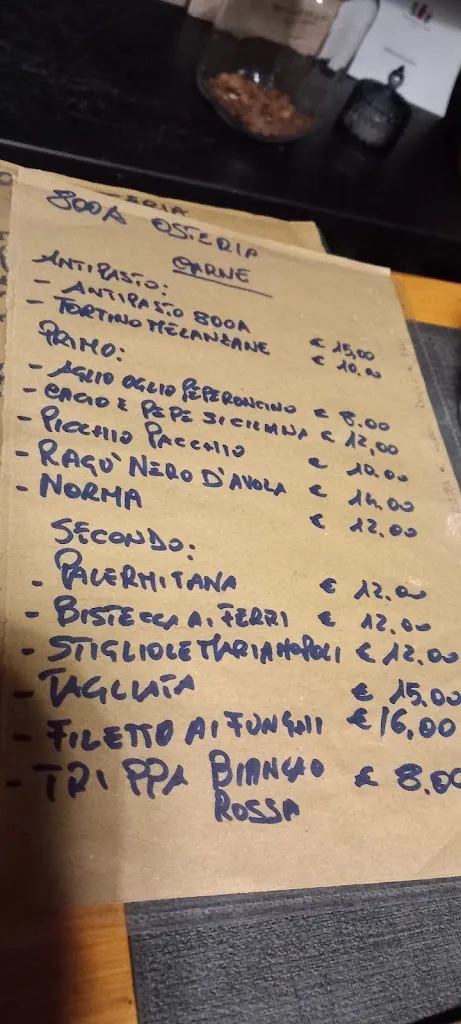 TERIA
800A OSTERIA
CARNE
ANTIPASTO:
- ANTIPASTO 800A € 15,00
- TORTINO MELANZANE € 10.00
PRIMO:
- AGLIO OGLIO PEPERONCINO € 8.00
- CACIO E PEPE SICILIANA € 12,00
- PICCHIO PACCHIO € 10.00
- RAGU' NERO D'AVOLA € 14.00
- NORMA € 12.00
SECONDO:
- PALERMITANA € 12.00
- BISTECCA AI FERRI € 12.00
- STIGLIOLE MARIANOPOLI € 12.00
- TAGLIATA € 15.00
- FILETTO AI FUNGHI € 16,00
- TRIPPA BIANCAO € 8.00
ROSSA